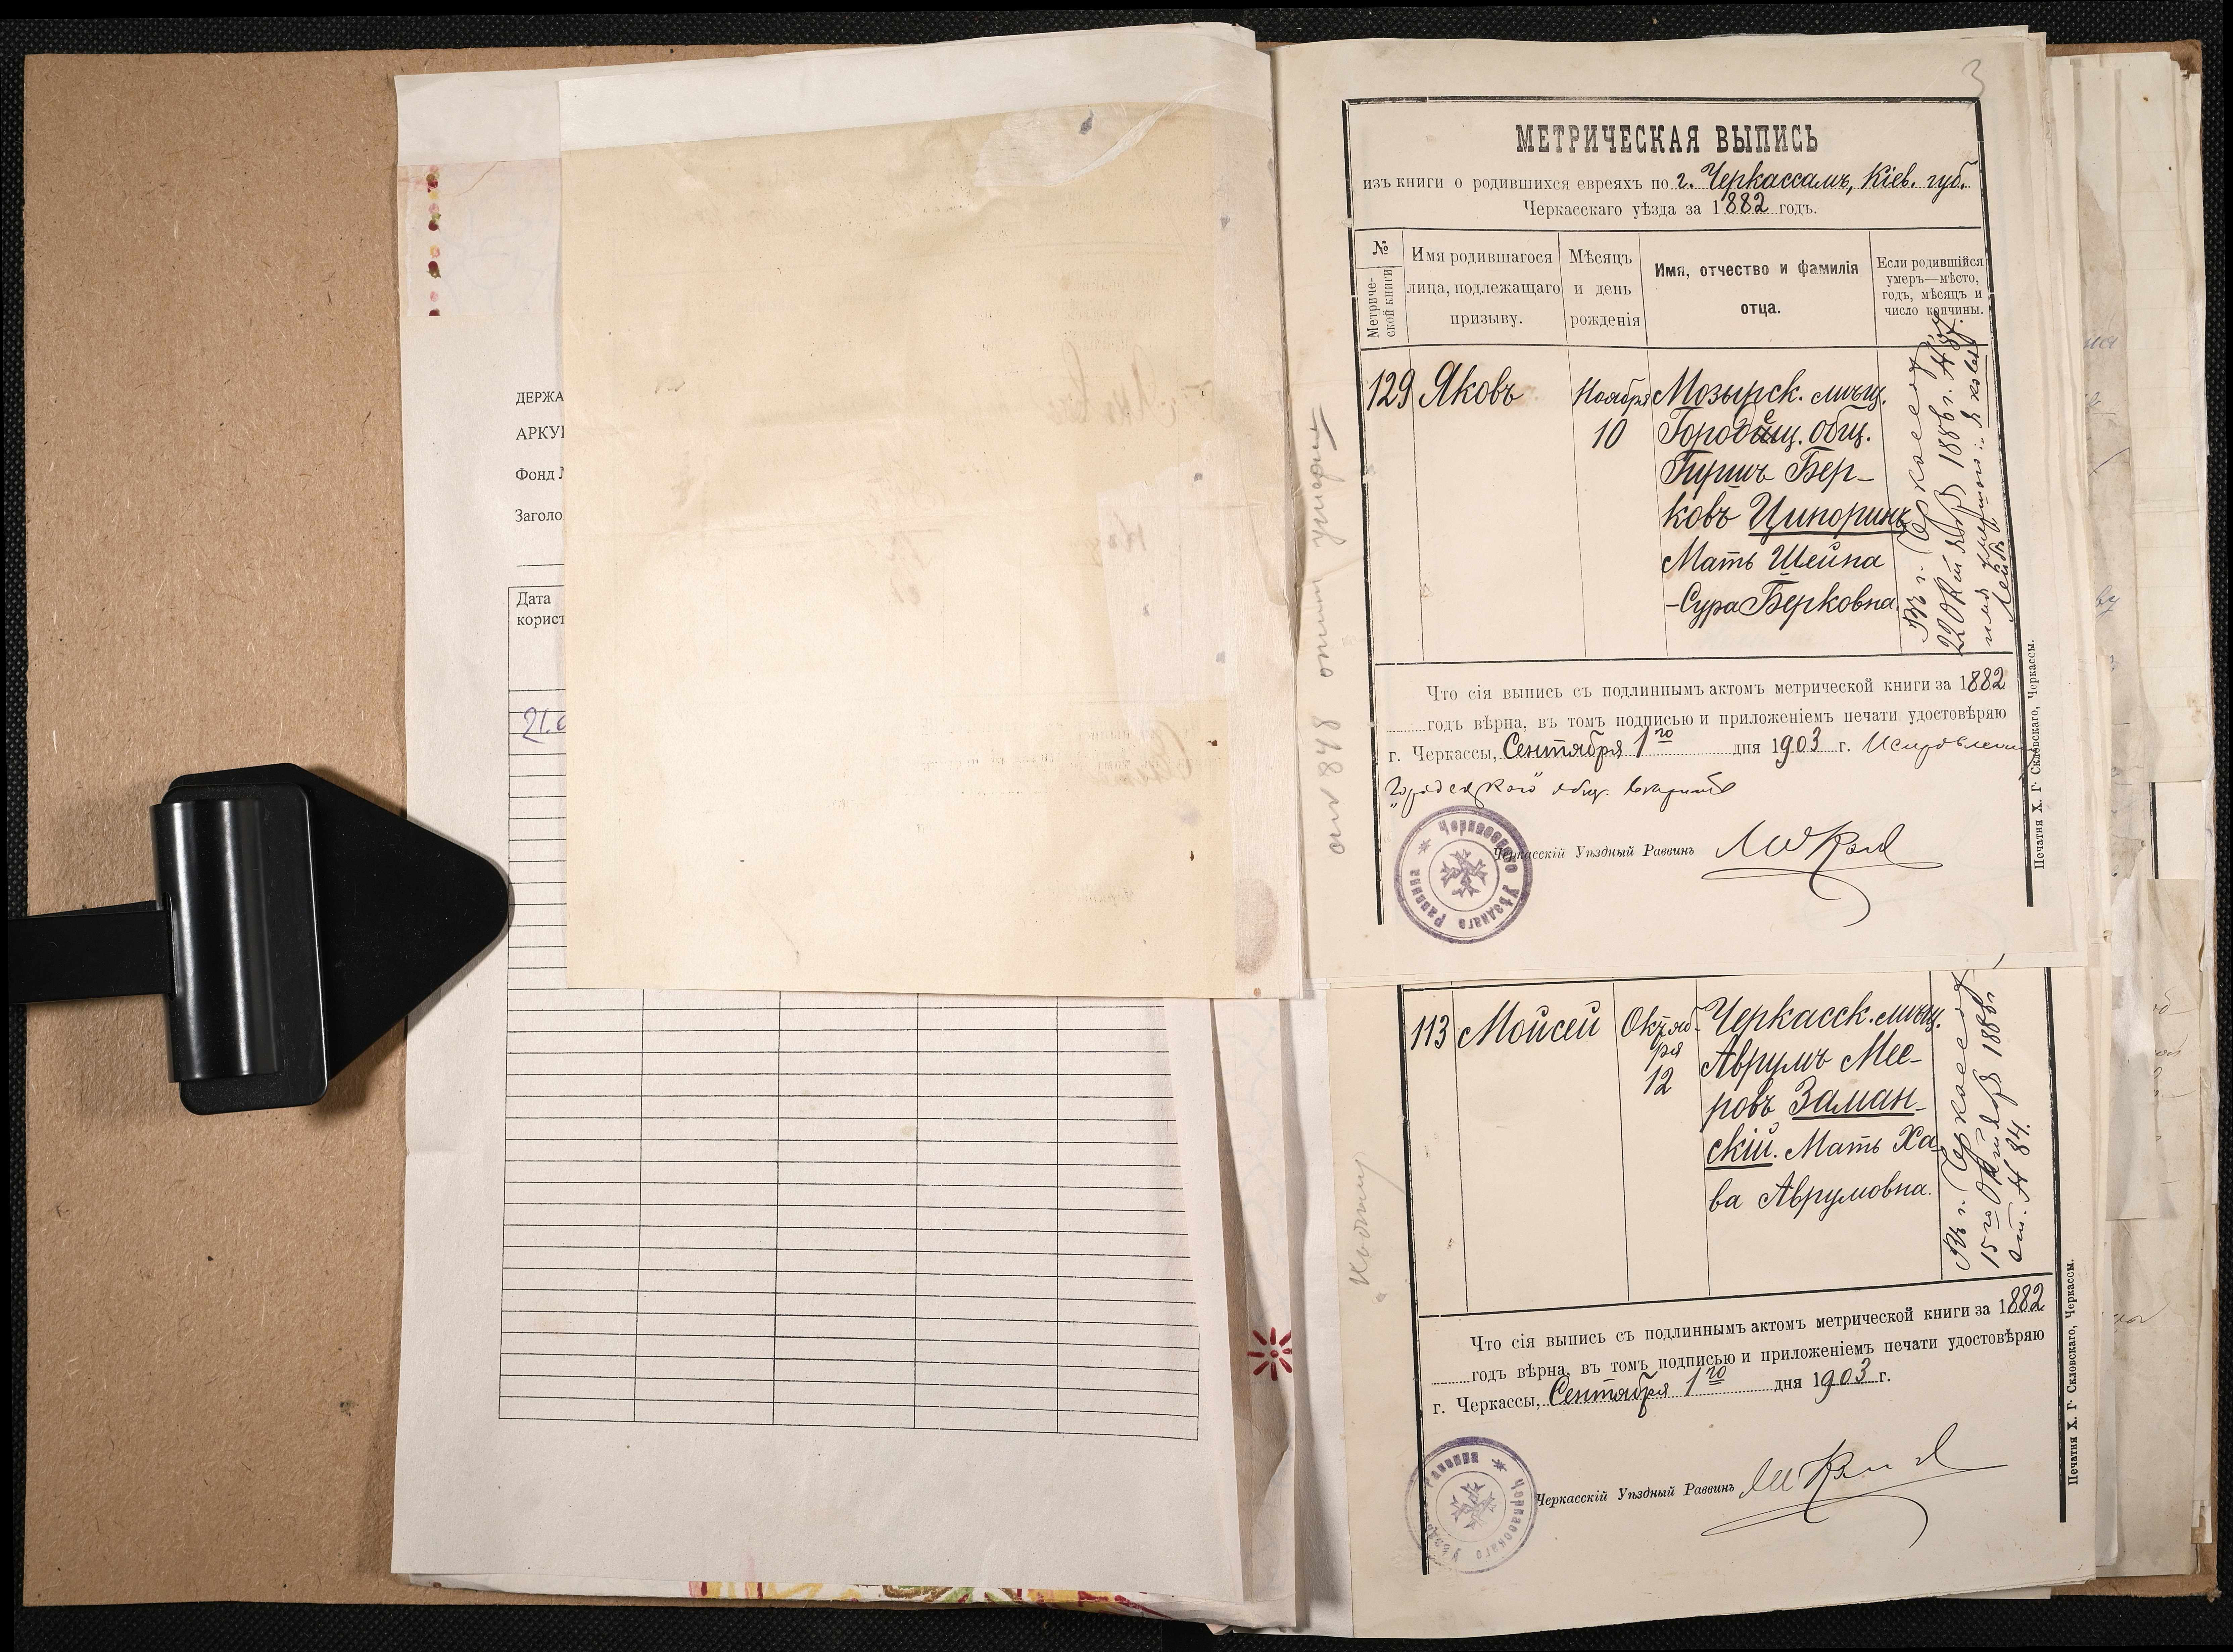 ДЕРЖА
АРКУ
Фонд
Заголо
Дата
корист
21.0
3
МЕТРИЧЕСКАЯ ВЫПИСЬ
изъ книги о родившихся евреяхъ по г. Черкассамъ, Кіев. губ.
Черкасскаго уѣзда за 1882 годъ.
№
Метриче-
ской книги
Имя родившагося
лица, подлежащаго
призыву.
Мѣсяцъ
и день
рожденія
Имя, отчество и фамилія
отца.
Если родившійся
умеръ—мѣсто,
годъ, мѣсяцъ и
число кончины.
129
Яковъ
Ноября
10
Мозырск. мѣщ.
Городищ. общ.
Гиршъ Бер-
ковъ Ципоринъ
Мать Шейна
-Сура Берковна.
Въ г. Черкассах
22 Октября 1886 г.
имя умершаго: Яковъ
Лейб
Что сія выпись съ подлиннымъ актомъ метрической книги за 1882
годъ вѣрна, въ томъ подписью и приложеніемъ печати удостовѣряю
г. Черкассы, Сентября 1го дня 1903 г. Исправленн
общ.
Черкасскій Уѣздный Раввинъ
Черкасскаго Уѣзднаго Раввина
Печатня Х. Г. Скловскаго, Черкассы.
113
Мойсей
Октяб-
ря
12
Черкасск. мѣщ.
Аврумъ Мее-
ровъ Заман-
скій. Мать Ха-
ва Аврумовна.
Въ г. Черкассах
15го Октября 1886 г.
ст. № 84.
Что сія выпись съ подлиннымъ актомъ метрической книги за 1882
годъ вѣрна, въ томъ подписью и приложеніемъ печати удостовѣряю
г. Черкассы, Сентября 1го дня 1903 г.
Черкасскій Уѣздный Раввинъ
Черкасскаго Уѣзднаго Раввина
Печатня Х. Г. Скловскаго, Черкассы.